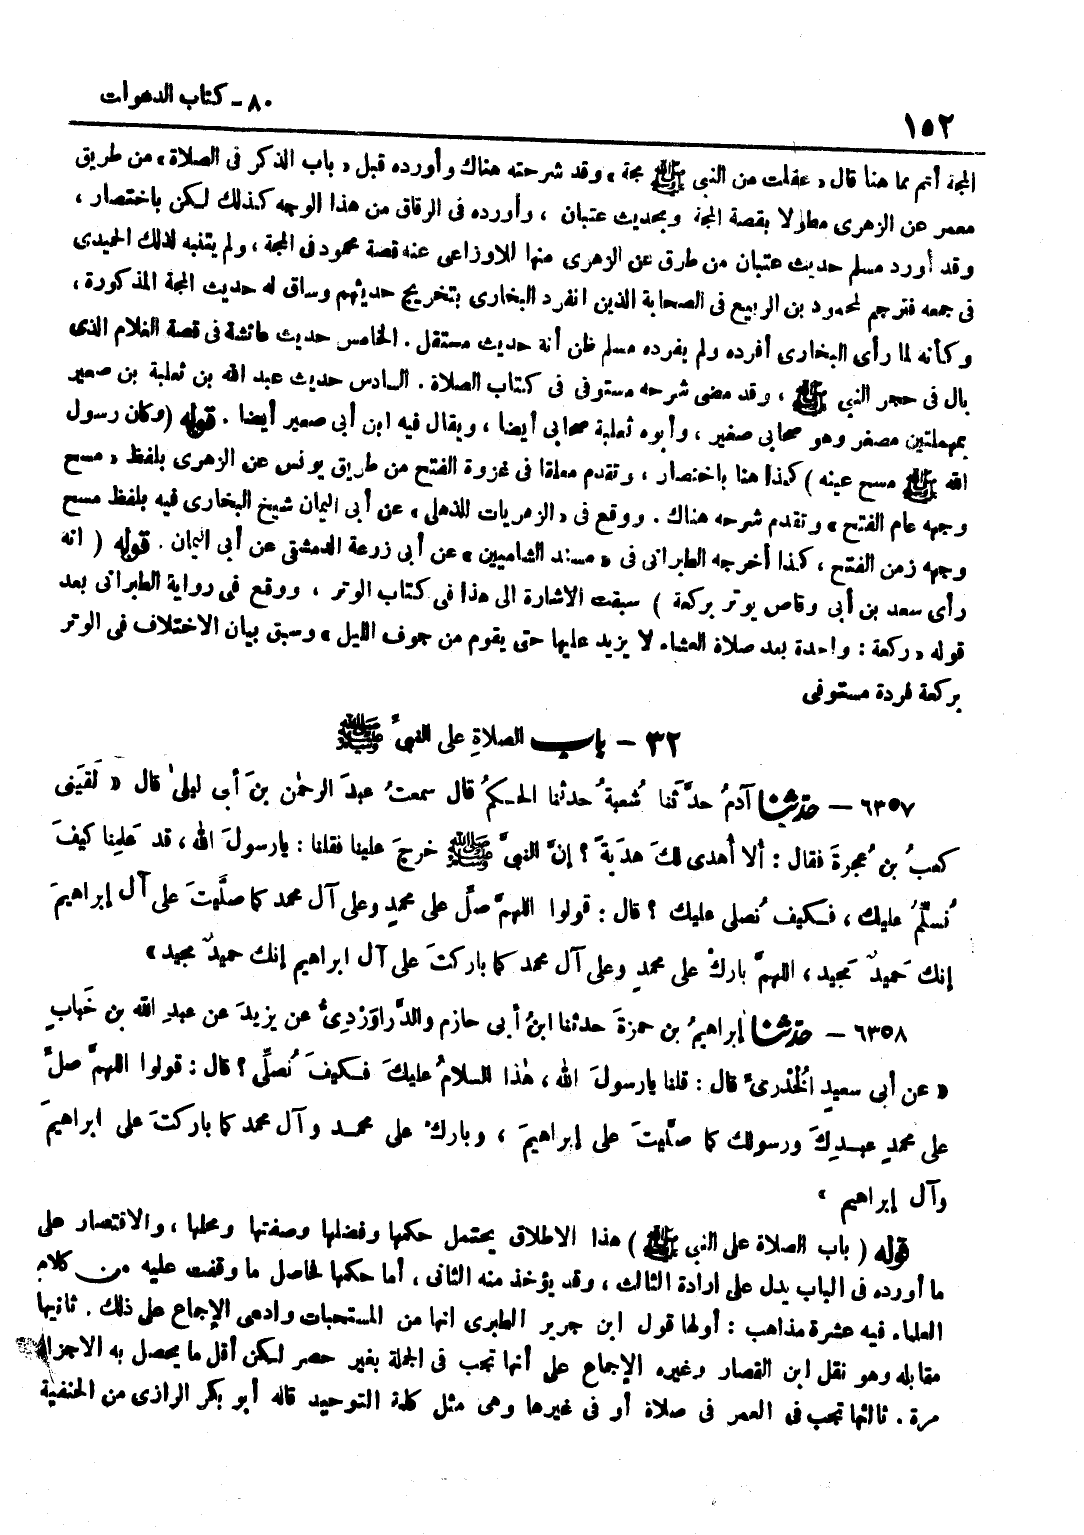 ٨٠ - كتاب الدعوات
١٥٢
المجة أتم مما هنا قال « عقلت من النبي ﷺ مجة » وقد شرحته هناك وأورده قبل « باب الذكر فى الصلاة » من طريق
معمر عن الزهرى مطولا بقصة المجة وبحديث عتبان ، وأورده فى الرقاق من هذا الوجه كذلك لكن باختصار ،
وقد أورد مسلم حديث عتبان من طرق عن الزهرى منها للاوزاعى عنه قصة محمود فى المجة ، ولم يتنبه لذلك الحميدى
فى جمعه فترجم لمحمود بن الربيع فى الصحابة الذين انفرد البخارى بتخريج حديثهم وساق له حديث المجة المذكورة ،
وكأنه لما رأى البخارى أفرده ولم يفرده مسلم ظن أنه حديث مستقل . الخامس حديث عائشة فى قصة الغلام الذى
بال فى حجر النبى ﷺ ، وقد مضى شرحه مستوفى فى كتاب الصلاة . السادس حديث عبد الله بن ثعلبة بن صعير
بمهملتين مصغر وهو صحابى صغير ، وأبوه ثعلبة صحابى أيضا ، ويقال فيه ابن أبى صعير أيضا . قوله ( وكان رسول
الله ﷺ مسح عينه ) كذا هنا باختصار ، وتقدم معلقا فى غزوة الفتح من طريق يونس عن الزهرى بلفظ « مسح
وجهه عام الفتح » وتقدم شرحه هناك . ووقع فى « الزهريات للذهلى » عن أبى اليمان شيخ البخارى فيه بلفظ مسح
وجهه زمن الفتح ، كذا أخرجه الطبرانى فى « مسند الشاميين » عن أبى زرعة الدمشقى عن أبى اليمان . قوله ( انه
رأى سعد بن أبى وقاص يوتر بركعة ) سبقت الاشارة الى هذا فى كتاب الوتر ، ووقع فى رواية الطبرانى بعد
قوله « ركعة : واحدة بعد صلاة العشاء لا يزيد عليها حتى يقوم من جوف الليل » وسبق بيان الاختلاف فى الوتر
بركعة فردة مستوفى
٣٢ - باب الصلاةِ على النبيِّ ﷺ
٦٣٥٧ - حدثنا آدمُ حدَّثنا شُعبةُ حدثنا الحـكمُ قال سمعتُ عبدَ الرحمٰن بنَ أبى ليلىٰ قال « لَقيَنى
كعبُ بن عُجرةَ فقال : ألا أُهدى لكَ هديةً ؟ إنَّ النبىَّ ﷺ خرجَ علينا فقلنا : يارسولَ الله ، قد عَلِمنا كيفَ
نُسلِّمُ عليك ، فـكيف نُصلى عليك ؟ قال : قولوا اللهمَّ صلِّ على محمدٍ وعلى آل محمد كما صلَّيتَ على آل إبراهيمَ
إنك حَميدٌ مَجيد ، اللهمَّ باركْ على محمدٍ وعلى آل محمد كما باركتَ على آل ابراهيم إنك حميدٌ مجيد »
٦٣٥٨ - حدثنا إبراهيمُ بن حمزةَ حدثنا ابنُ أبى حازم والدَّراوَرْدِىُّ عن يزيدَ عن عبدِ الله بن خَبابٍ
« عن أبى سعيدٍ الخُدْرىِّ قال : قلنا يارسولَ الله ، هٰذا السلامُ عليكَ فـكيفَ نُصلِّى ؟ قال : قولوا اللهمَّ صلِّ
على محمدٍ عبـدِكَ ورسولك كما صلَّيتَ على إبراهيمَ ، وباركْ على محمـد وآل محمد كما باركتَ على ابراهيمَ
وآل إبراهيم »
قوله ( باب الصلاة على النبى ﷺ ) هذا الاطلاق يحتمل حكمها وفضلها وصفتها ومحلها ، والاقتصار على
ما أورده فى الباب يدل على ارادة الثالث ، وقد يؤخذ منه الثانى ، أما حكمها فحاصل ما وقفت عليه من كلام
العلماء فيه عشرة مذاهب : أولها قول ابن جرير الطبرى انها من المستحبات وادعى الإجماع على ذلك . ثانيها
مقابله وهو نقل ابن القصار وغيره الإجماع على أنها تجب فى الجملة بغير حصر لـكن أقل ما يحصل به الاجزاء
مرة . ثالثها تجب فى العمر فى صلاة أو فى غيرها وهى مثل كلمة التوحيد قاله أبو بكر الرازى من الحنفية